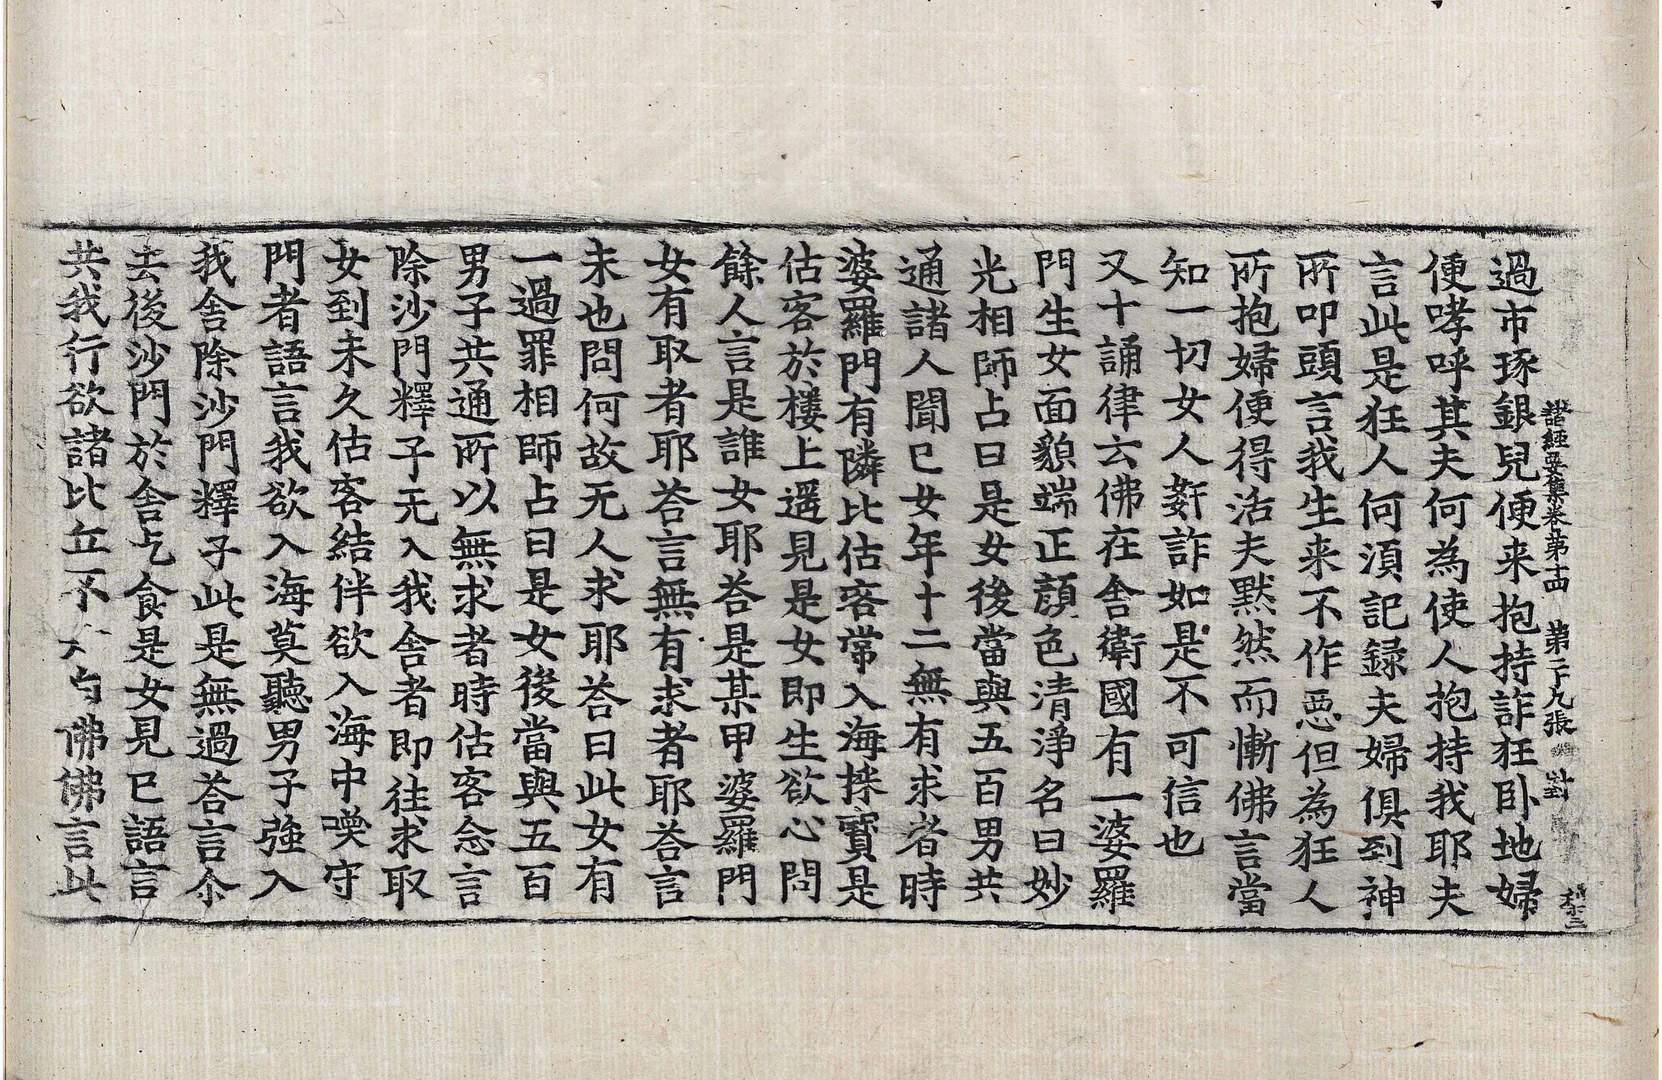 諸經要集卷第十四 第二十九張 對
過市琢銀兒便来抱持詐狂卧地婦
便哮呼其夫何為使人抱持我耶夫
言此是狂人何湏記録夫婦俱到神
所叩頭言我生来不作惡但為狂人
所抱婦便得活夫默然而慚佛言當
知一切女人姧詐如是不可信也
又十誦律云佛在舎衛國有一婆羅
門生女面貌端正顔色清淨名曰妙
光相師占曰是女後當與五百男共
通諸人聞已女年十二無有求者時
婆羅門有隣比估客常入海採寳是
估客於樓上遥見是女即生欲心問
餘人言是誰女耶荅是某甲婆羅門
女有取者耶荅言無有求者耶荅言
未也問何故无人求耶荅曰此女有
一過罪相師占曰是女後當與五百
男子共通所以無求者時估客念言
除沙門釋子无入我舎者即往求取
女到未久估客結伴欲入海中喚守
門者語言我欲入海莫聽男子強入
我舎除沙門釋子此是無過荅言尒
去後沙門於舎乞食是女見已語言
共我行欲諸比丘不 白佛佛言此